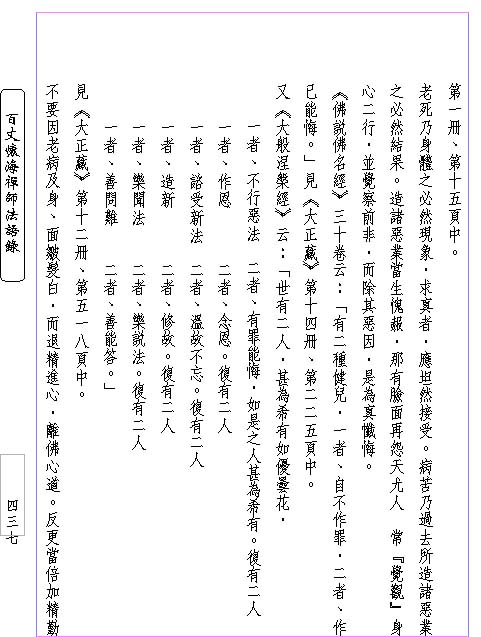 第一冊、第十五頁中。
老死乃身體之必然現象，求真者，應坦然接受。病苦乃過去所造諸惡業
之必然結果。造諸惡業當生愧赧，那有臉面再怨天尤人　常『覺觀』身
心二行，並覺察前非，而除其惡因，是為真懺悔。
《佛說佛名經》三十卷云：「有二種健兒，一者、自不作罪，二者、作
已能悔。」見《大正藏》第十四冊、第二二五頁中。
又《大般涅槃經》云：「世有二人，甚為希有如優曇花，
一者、不行惡法　二者、有罪能悔，如是之人甚為希有。復有二人
一者、作恩　二者、念恩。復有二人
一者、諮受新法　二者、溫故不忘。復有二人
一者、造新　二者、修故。復有二人
一者、樂聞法　二者、樂說法。復有二人
一者、善問難　二者、善能答。」
見《大正藏》第十二冊、第五一八頁中。
不要因老病及身、面皺髮白，而退精進心，離佛心道。反更當倍加精勤
百丈懷海禪師法語錄
四三七